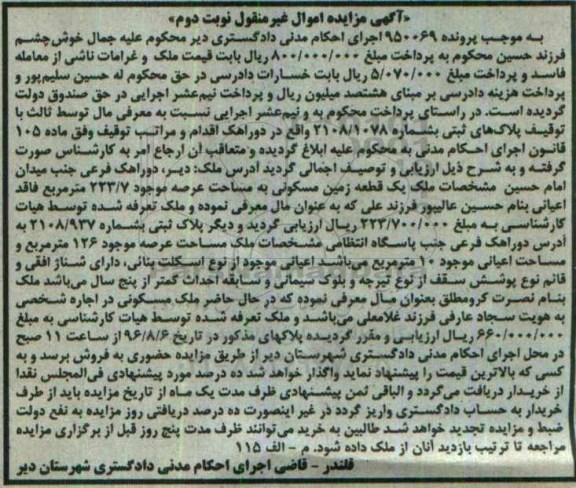 «آگهی مزایده اموال غیرمنقول نوبت دوم»
به موجب پرونده ۹۵۰۰۶۹ اجرای احکام مدنی دادگستری دیر محکوم علیه جمال خوش‌چشم
فرزند حسین محکوم به پرداخت مبلغ ۸۰۰/۰۰۰/۰۰۰ ریال بابت قیمت ملک و غرامات ناشی از معامله
فاسد و پرداخت مبلغ ۵/۰۷۰/۰۰۰ ریال بابت خسارات دادرسی در حق محکوم له حسین سلیم‌پور و
پرداخت هزینه دادرسی بر مبنای هشتصد میلیون ریال و پرداخت نیم‌عشر اجرایی در حق صندوق دولت
گردیده است. در راستای پرداخت محکوم به و نیم‌عشر اجرایی نسبت به معرفی مال توسط ثالث با
توقیف پلاک‌های ثبتی بشماره ۲۱۰۸/۱۰۷۸ واقع در دوراهک اقدام و مراتب توقیف وفق ماده ۱۰۵
قانون اجرای احکام مدنی به محکوم علیه ابلاغ گردیده و متعاقب آن ارجاع امر به کارشناس صورت
گرفته و به شرح ذیل ارزیابی و توصیف اجمالی گردید آدرس ملک: دیر، دوراهک فرعی جنب میدان
امام حسین مشخصات ملک یک قطعه زمین مسکونی به مساحت عرصه موجود ۲۲۳/۷ مترمربع فاقد
اعیانی بنام حسین عالیپور فرزند علی که به عنوان مال معرفی نموده و ملک تعرفه شده توسط هیات
کارشناسی به مبلغ ۲۲۳/۷۰۰/۰۰۰ ریال ارزیابی گردید و دیگر پلاک ثبتی بشماره ۲۱۰۸/۹۳۷ به
آدرس دوراهک فرعی جنب پاسگاه انتظامی مشخصات ملک مساحت عرصه موجود ۱۲۶ مترمربع و
مساحت اعیانی موجود ۱۰ مترمربع می‌باشد اعیانی موجود از نوع اسکلت بنائی، دارای شناژ افقی و
قائم نوع پوشش سقف از نوع تیرچه و بلوک سیمانی و سابقه احداث کمتر از پنج سال می‌باشد ملک
بنام نصرت کرومطلق بعنوان مال معرفی نموده که در حال حاضر ملک مسکونی در اجاره شخصی
به هویت سجاد عارفی فرزند غلامعلی می‌باشد و ملک تعرفه شده توسط هیات کارشناسی به مبلغ
۶۶۰/۰۰۰/۰۰۰ ریال ارزیابی و مقرر گردیده پلاکهای مذکور در تاریخ ۹۶/۸/۶ از ساعت ۱۱ صبح
در محل اجرای احکام مدنی دادگستری شهرستان دیر از طریق مزایده حضوری به فروش برسد و به
کسی که بالاترین قیمت را پیشنهاد نماید واگذار خواهد شد ده درصد مورد پیشنهادی فی‌المجلس نقدا
از خریدار دریافت می‌گردد و الباقی ثمن پیشنهادی ظرف مدت یک ماه از تاریخ مزایده باید از طرف
خریدار به حساب دادگستری واریز گردد در غیر اینصورت ده درصد دریافتی روز مزایده به نفع دولت
ضبط و مزایده تجدید خواهد شد طالبین به خرید می‌توانند ظرف مدت پنج روز قبل از برگزاری مزایده
مراجعه تا ترتیب بازدید آنان از ملک داده شود. م – الف ۱۱۵
قلندر – قاضی اجرای احکام مدنی دادگستری شهرستان دیر